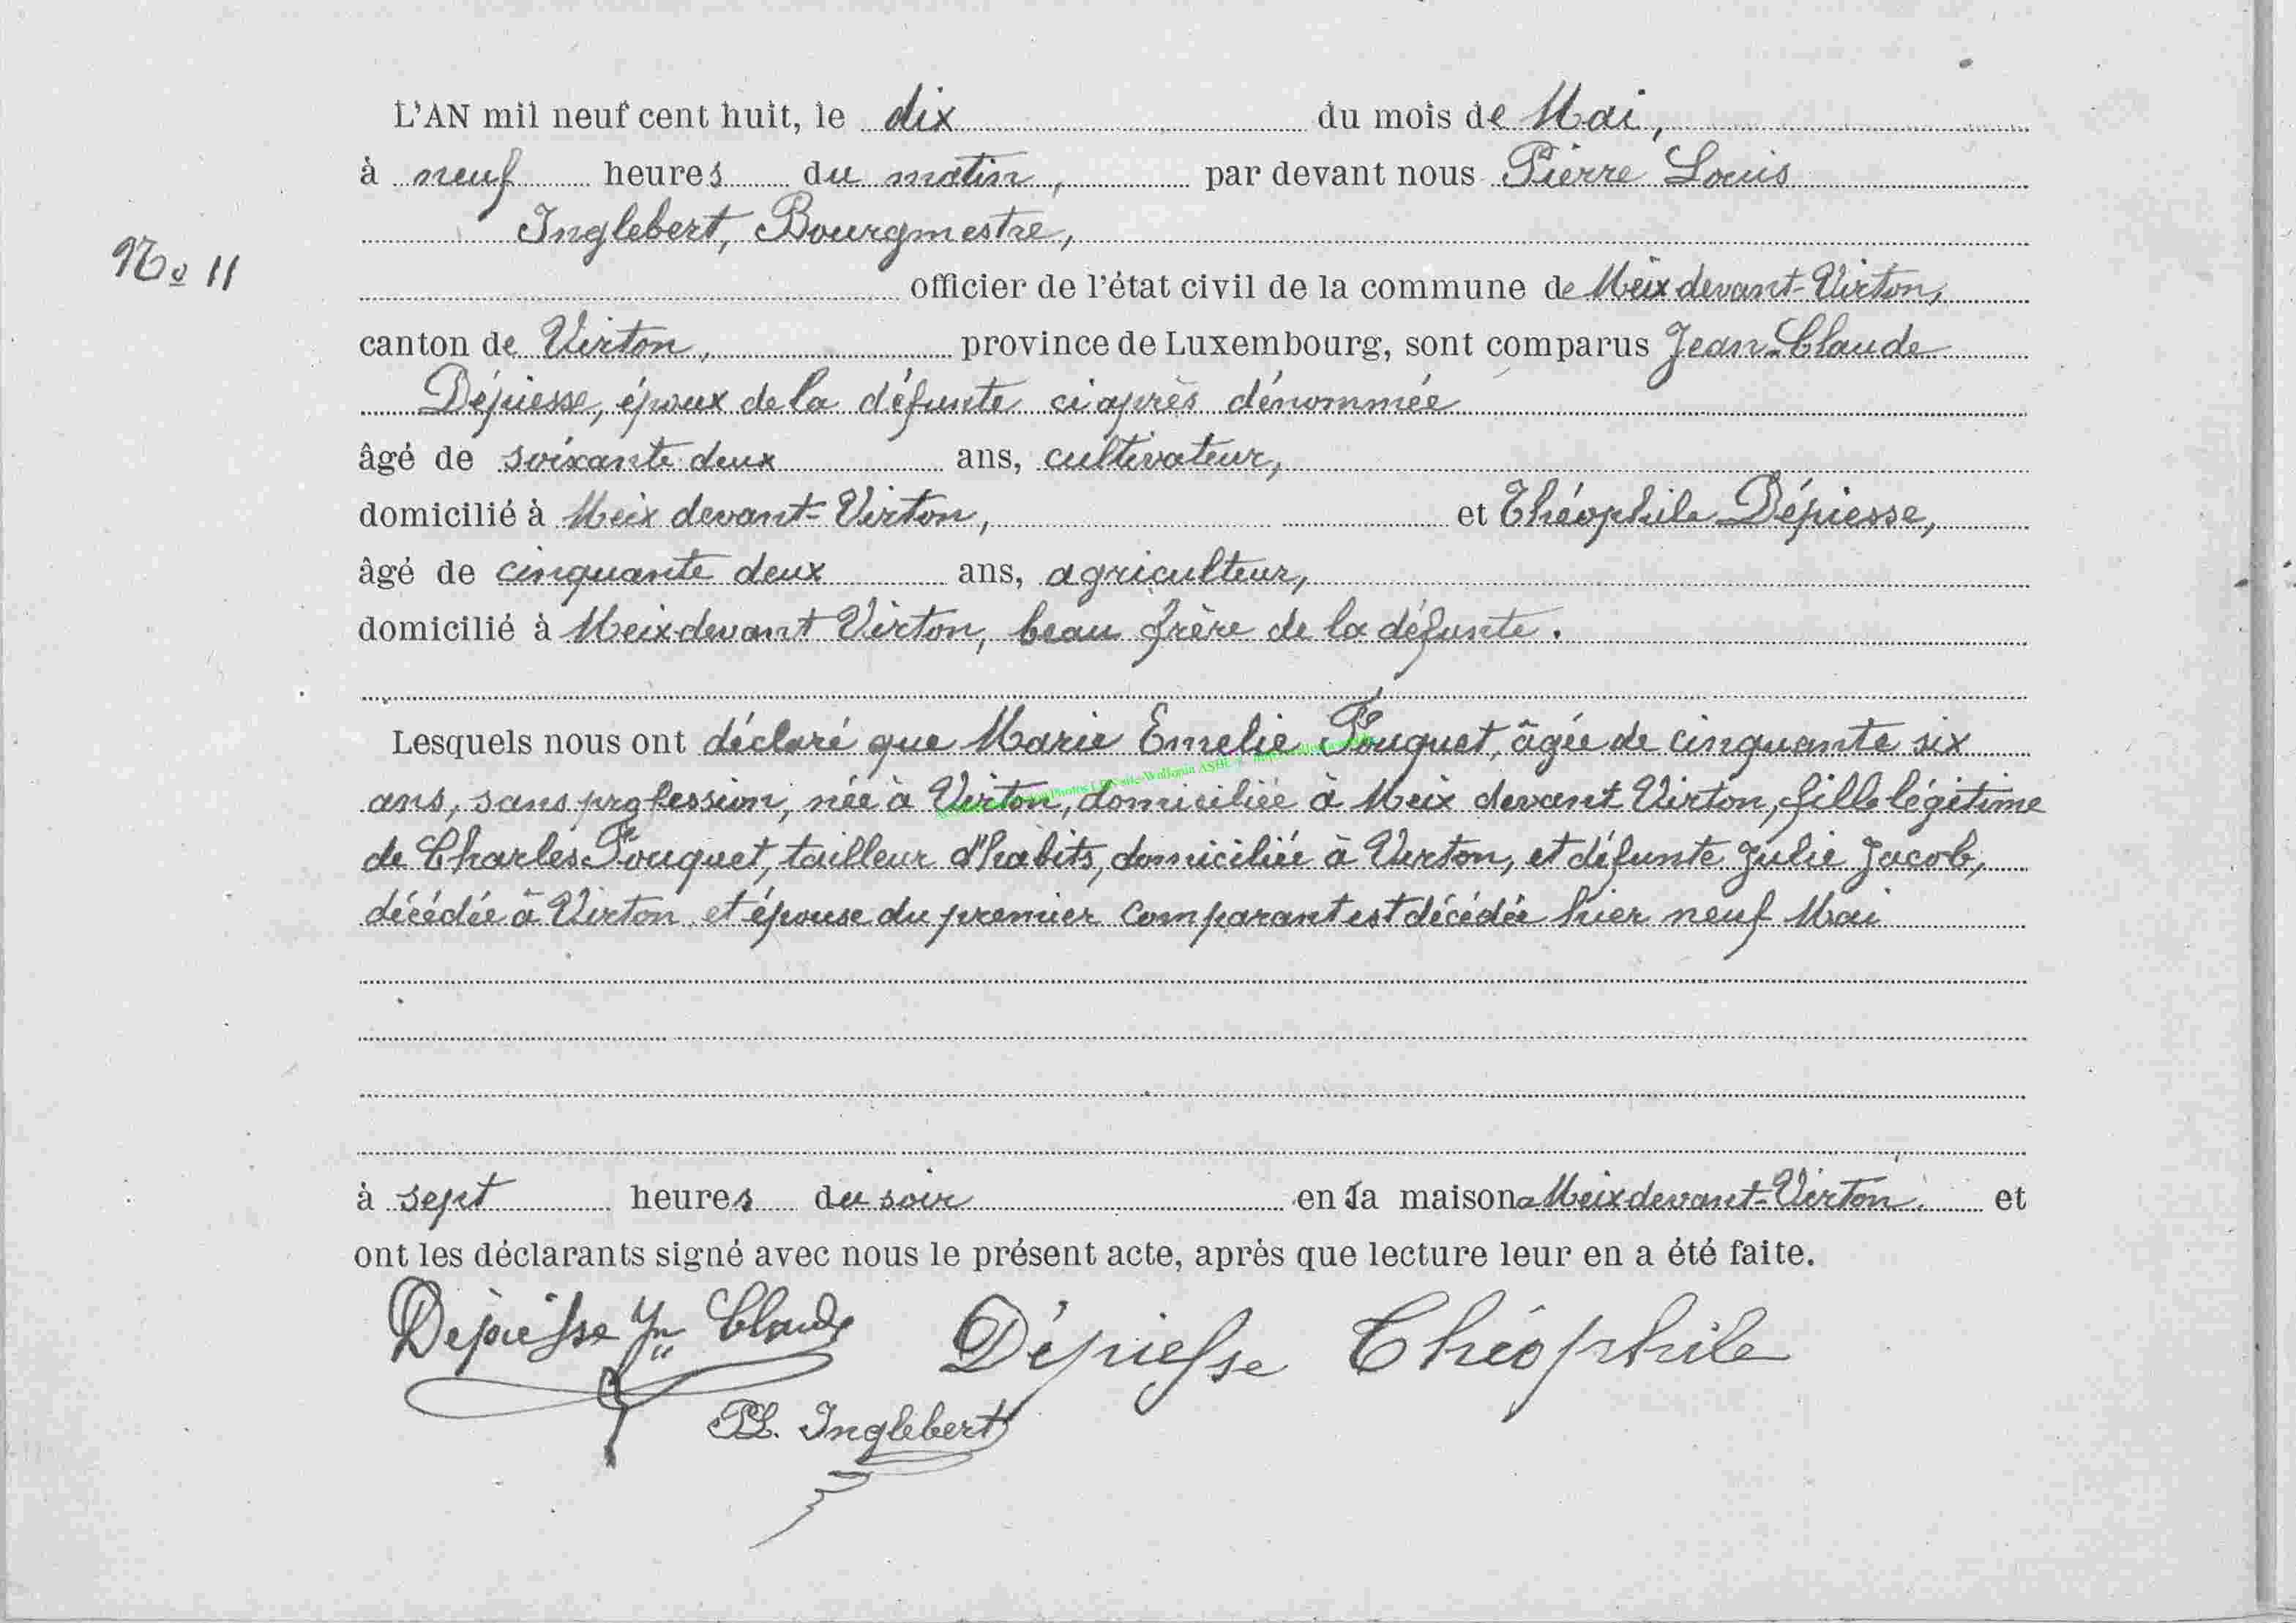 L'AN mil neuf cent huit, le dix du mois de Mai,
à neuf heures du matin, par devant nous Pierre Louis
Inglebert, Bourgmestre,
No 11
officier de l'état civil de la commune de Meix devant-Virton,
canton de Virton, province de Luxembourg, sont comparus Jean-Claude
Dépiesse, époux de la défunte ci après dénommée
âgé de soixante deux ans, cultivateur,
domicilié à Meix devant-Virton, et Théophile Dépiesse,
âgé de cinquante deux ans, agriculteur,
domicilié à Meix devant Virton, beau frère de la défunte.
Lesquels nous ont déclaré que Marie Emelie Fouquet, âgée de cinquante six
ans, sans profession, née à Virton, domiciliée à Meix devant Virton, fille légitime
de Charles Fouquet, tailleur d'habits, domiciliée à Virton, et défunte Julie Jacob,
décédée à Virton et épouse du premier comparant est décédée hier neuf Mai
à sept heures du soir en sa maison a Meix devant-Virton. et
ont les déclarants signé avec nous le présent acte, après que lecture leur en a été faite.
Dépiesse Jn Claude Dépiesse Théophile
PL. Inglebert